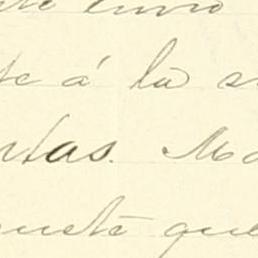 envio
te á la s
ntas. Ma
uete que